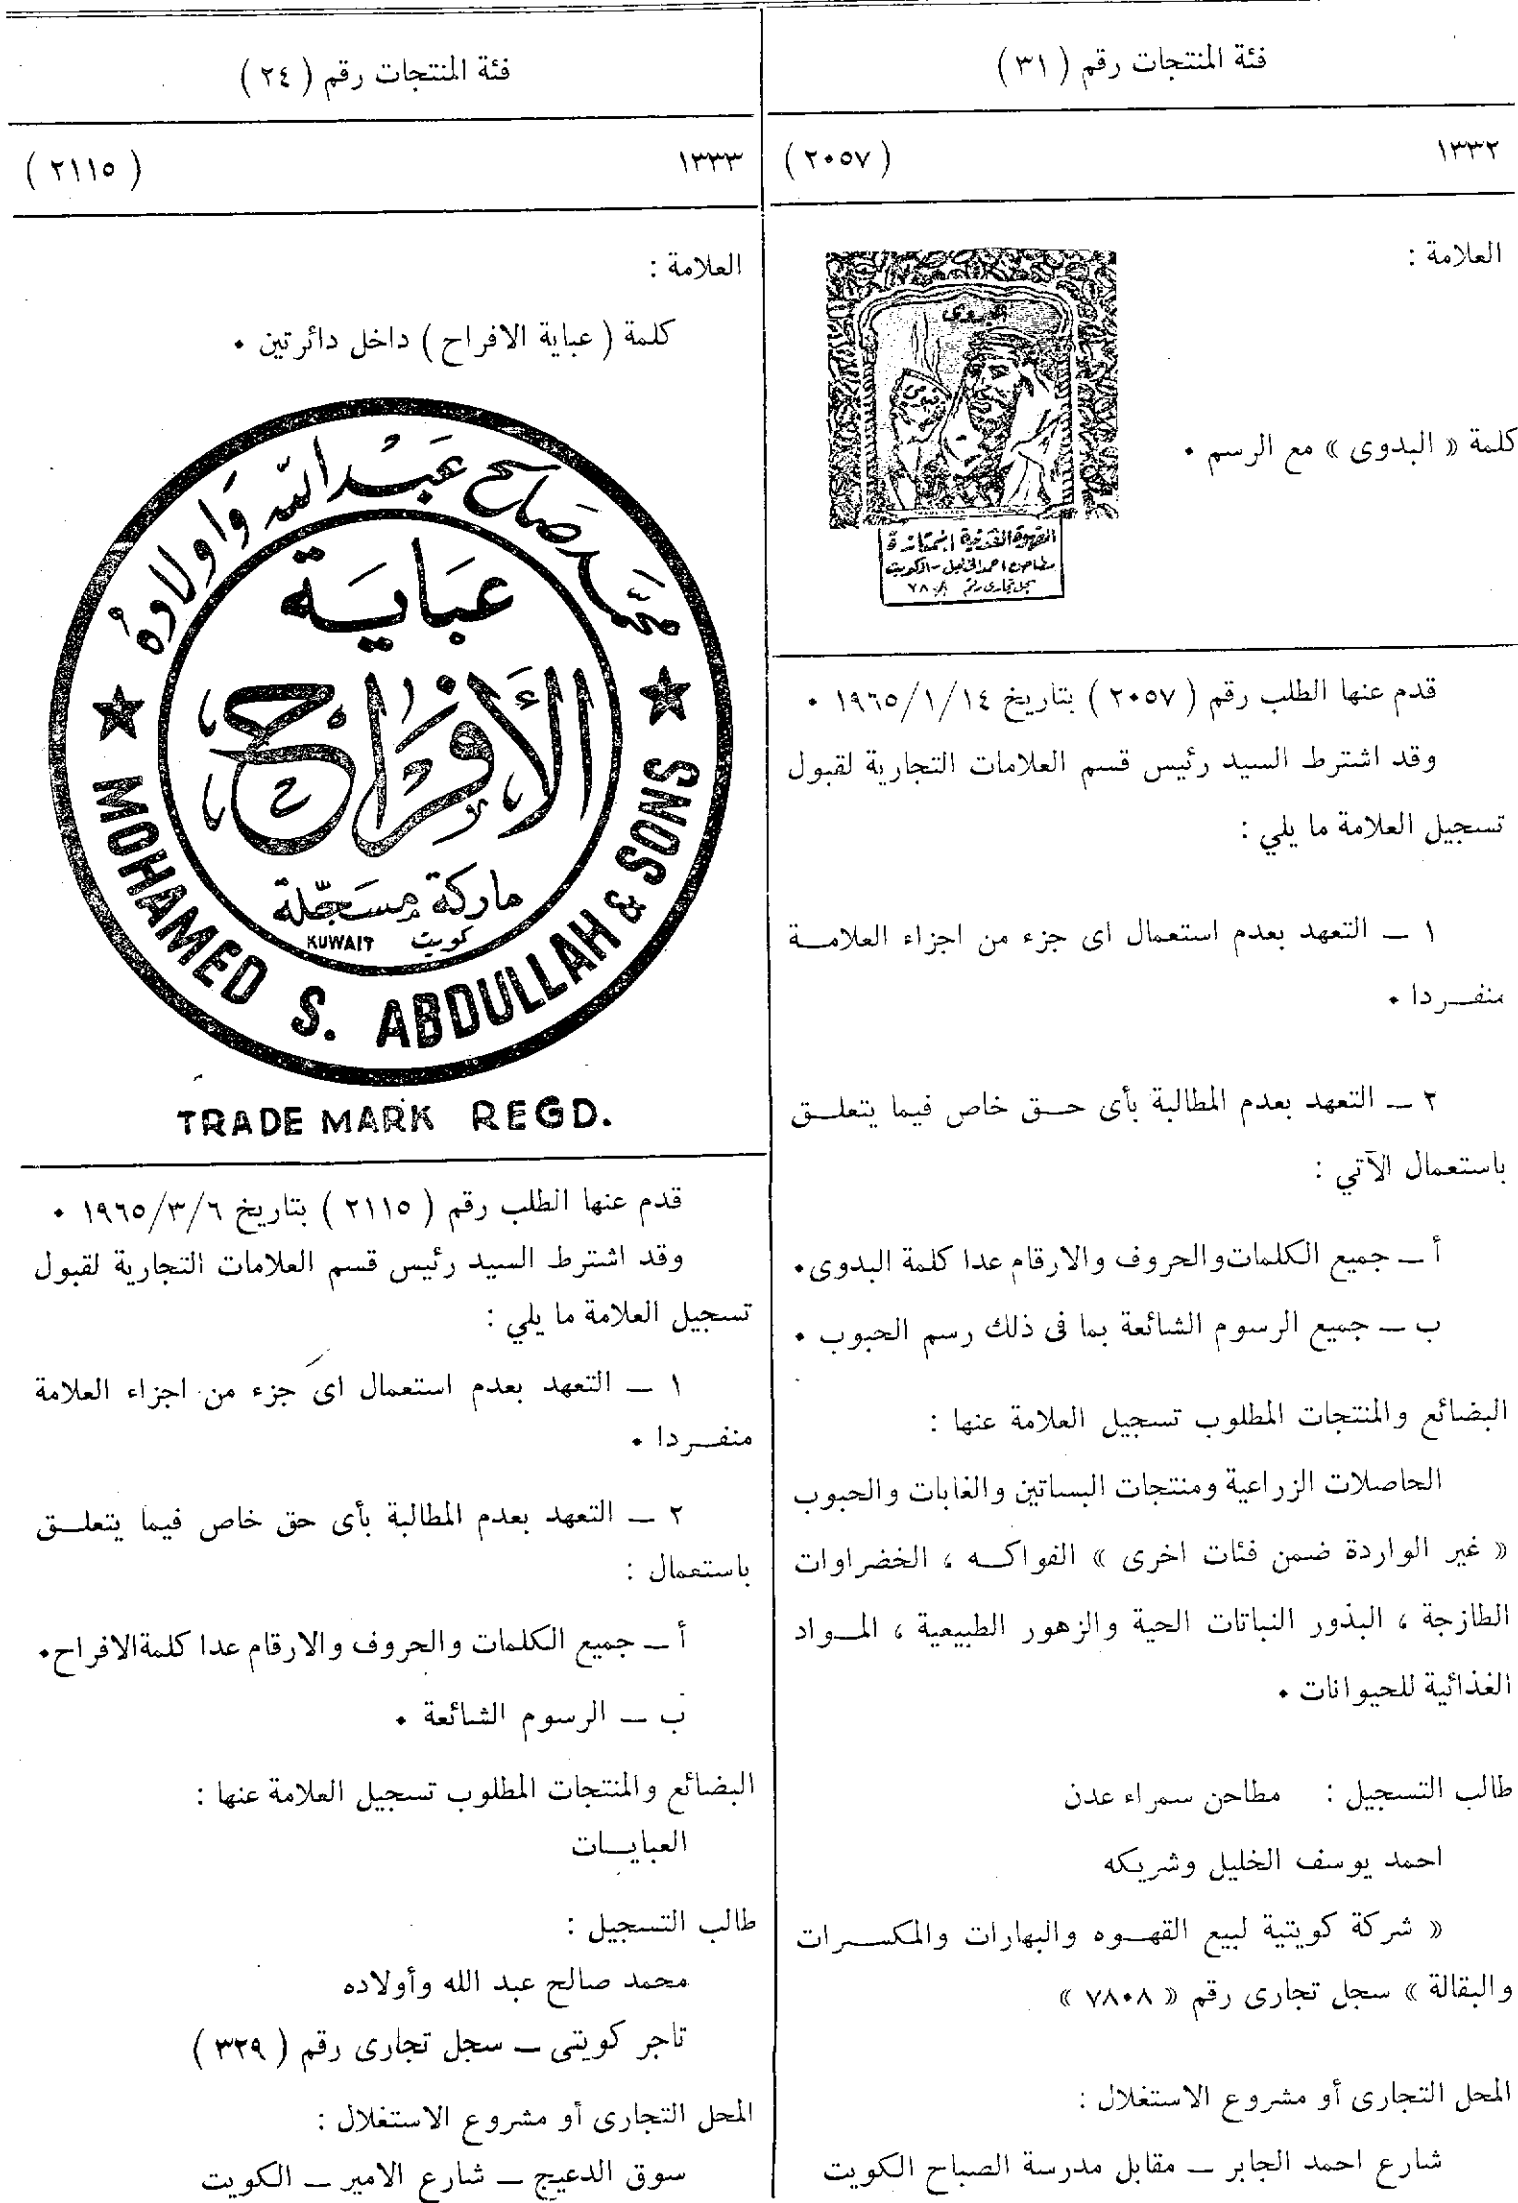 فئة المنتجات رقم ( ٣١ )
١٣٣٢ ( ٢٠٥٧ )
العلامة :
البدوى
كلمة « البدوى » مع الرسم ٠
قدم عنها الطلب رقم ( ٢٠٥٧ ) بتاريخ ١٩٦٥/١/١٤ ٠
وقد اشترط السيد رئيس قسم العلامات التجارية لقبول
تسجيل العلامة ما يلي :
١ ــ التعهد بعدم استعمال اى جزء من اجزاء العلامـــة
منفـــردا ٠
٢ ــ التعهد بعدم المطالبة بأى حـــق خاص فيما يتعلـــق
باستعمال الآتي :
أ ــ جميع الكلمات والحروف والارقام عدا كلمة البدوى٠
ب ــ جميع الرسوم الشائعة بما فى ذلك رسم الحبوب ٠
البضائع والمنتجات المطلوب تسجيل العلامة عنها :
الحاصلات الزراعية ومنتجات البساتين والغابات والحبوب
« غير الواردة ضمن فئات اخرى » الفواكـــه ، الخضراوات
الطازجة ، البذور النباتات الحية والزهور الطبيعية ، المـــواد
الغذائية للحيوانات ٠
طالب التسجيل : مطاحن سمراء عدن
احمد يوسف الخليل وشريكه
« شركة كويتية لبيع القهـــوه والبهارات والمكســـرات
والبقالة » سجل تجارى رقم « ٧٨٠٨ »
المحل التجارى أو مشروع الاستغلال :
شارع احمد الجابر ــ مقابل مدرسة الصباح الكويت
فئة المنتجات رقم ( ٢٤ )
١٣٣٣ ( ٢١١٥ )
العلامة :
كلمة ( عباية الافراح ) داخل دائرتين ٠
محمد صالح عبد الله واولاده
عباية
الأفراح
ماركة مسجلة
كويت KUWAIT
MOHAMED S. ABDULLAH & SONS
TRADE MARK REGD.
قدم عنها الطلب رقم ( ٢١١٥ ) بتاريخ ١٩٦٥/٣/٦ ٠
وقد اشترط السيد رئيس قسم العلامات التجارية لقبول
تسجيل العلامة ما يلي :
١ ــ التعهد بعدم استعمال اى جزء من اجزاء العلامة
منفـــردا ٠
٢ ــ التعهد بعدم المطالبة بأى حق خاص فيما يتعلـــق
باستعمال :
أ ــ جميع الكلمات والحروف والارقام عدا كلمة الافراح٠
ب ــ الرسوم الشائعة ٠
البضائع والمنتجات المطلوب تسجيل العلامة عنها :
العبايـــات
طالب التسجيل :
محمد صالح عبد الله وأولاده
تاجر كويتى ــ سجل تجارى رقم ( ٣٢٩ )
المحل التجارى أو مشروع الاستغلال :
سوق الدعيج ــ شارع الامير ــ الكويت